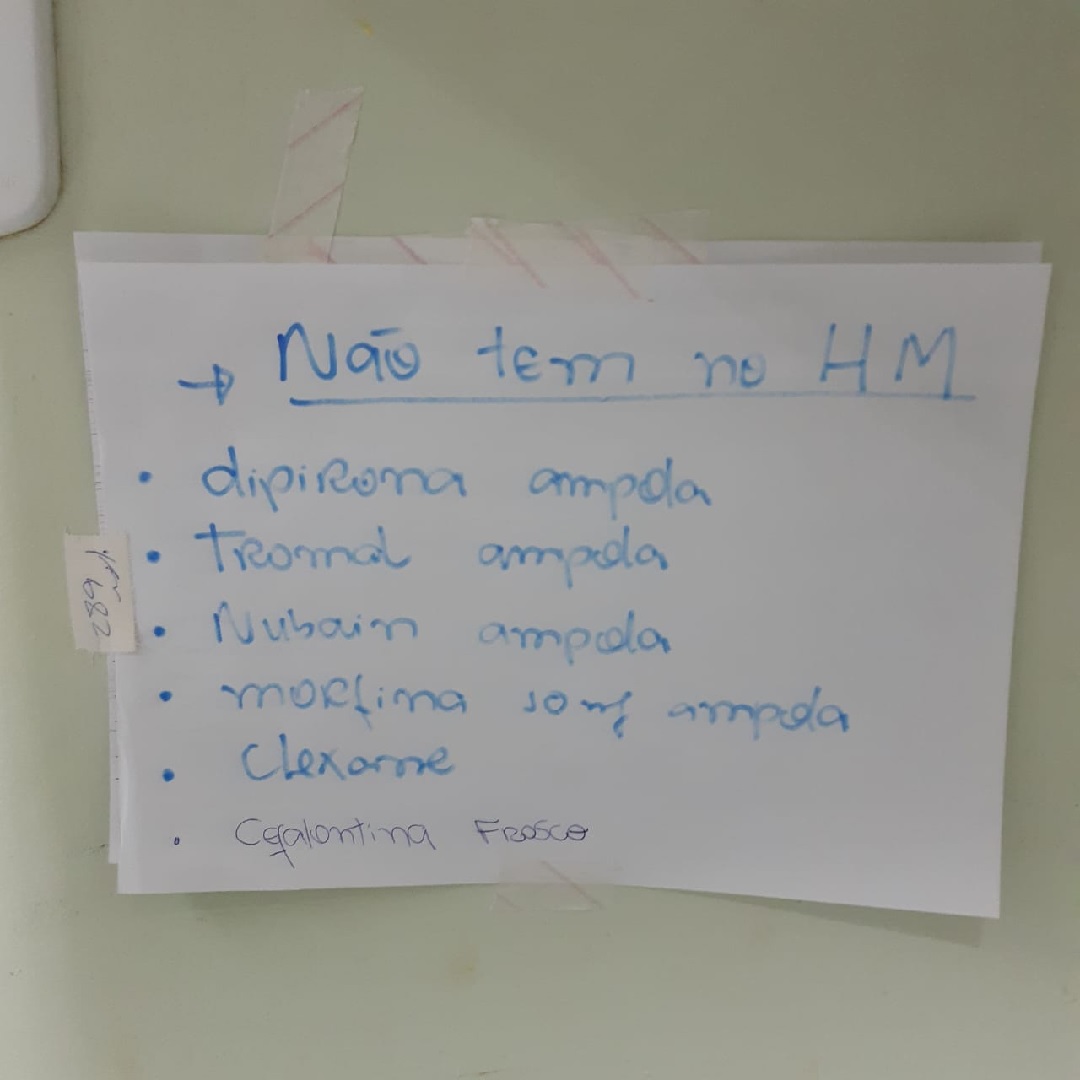 → Não tem no HM
• dipirona ampola
• Tramal ampola
• Nubain ampola
• morfina 10 mg ampola
• Clexane
• Cefalontina Frasco
682